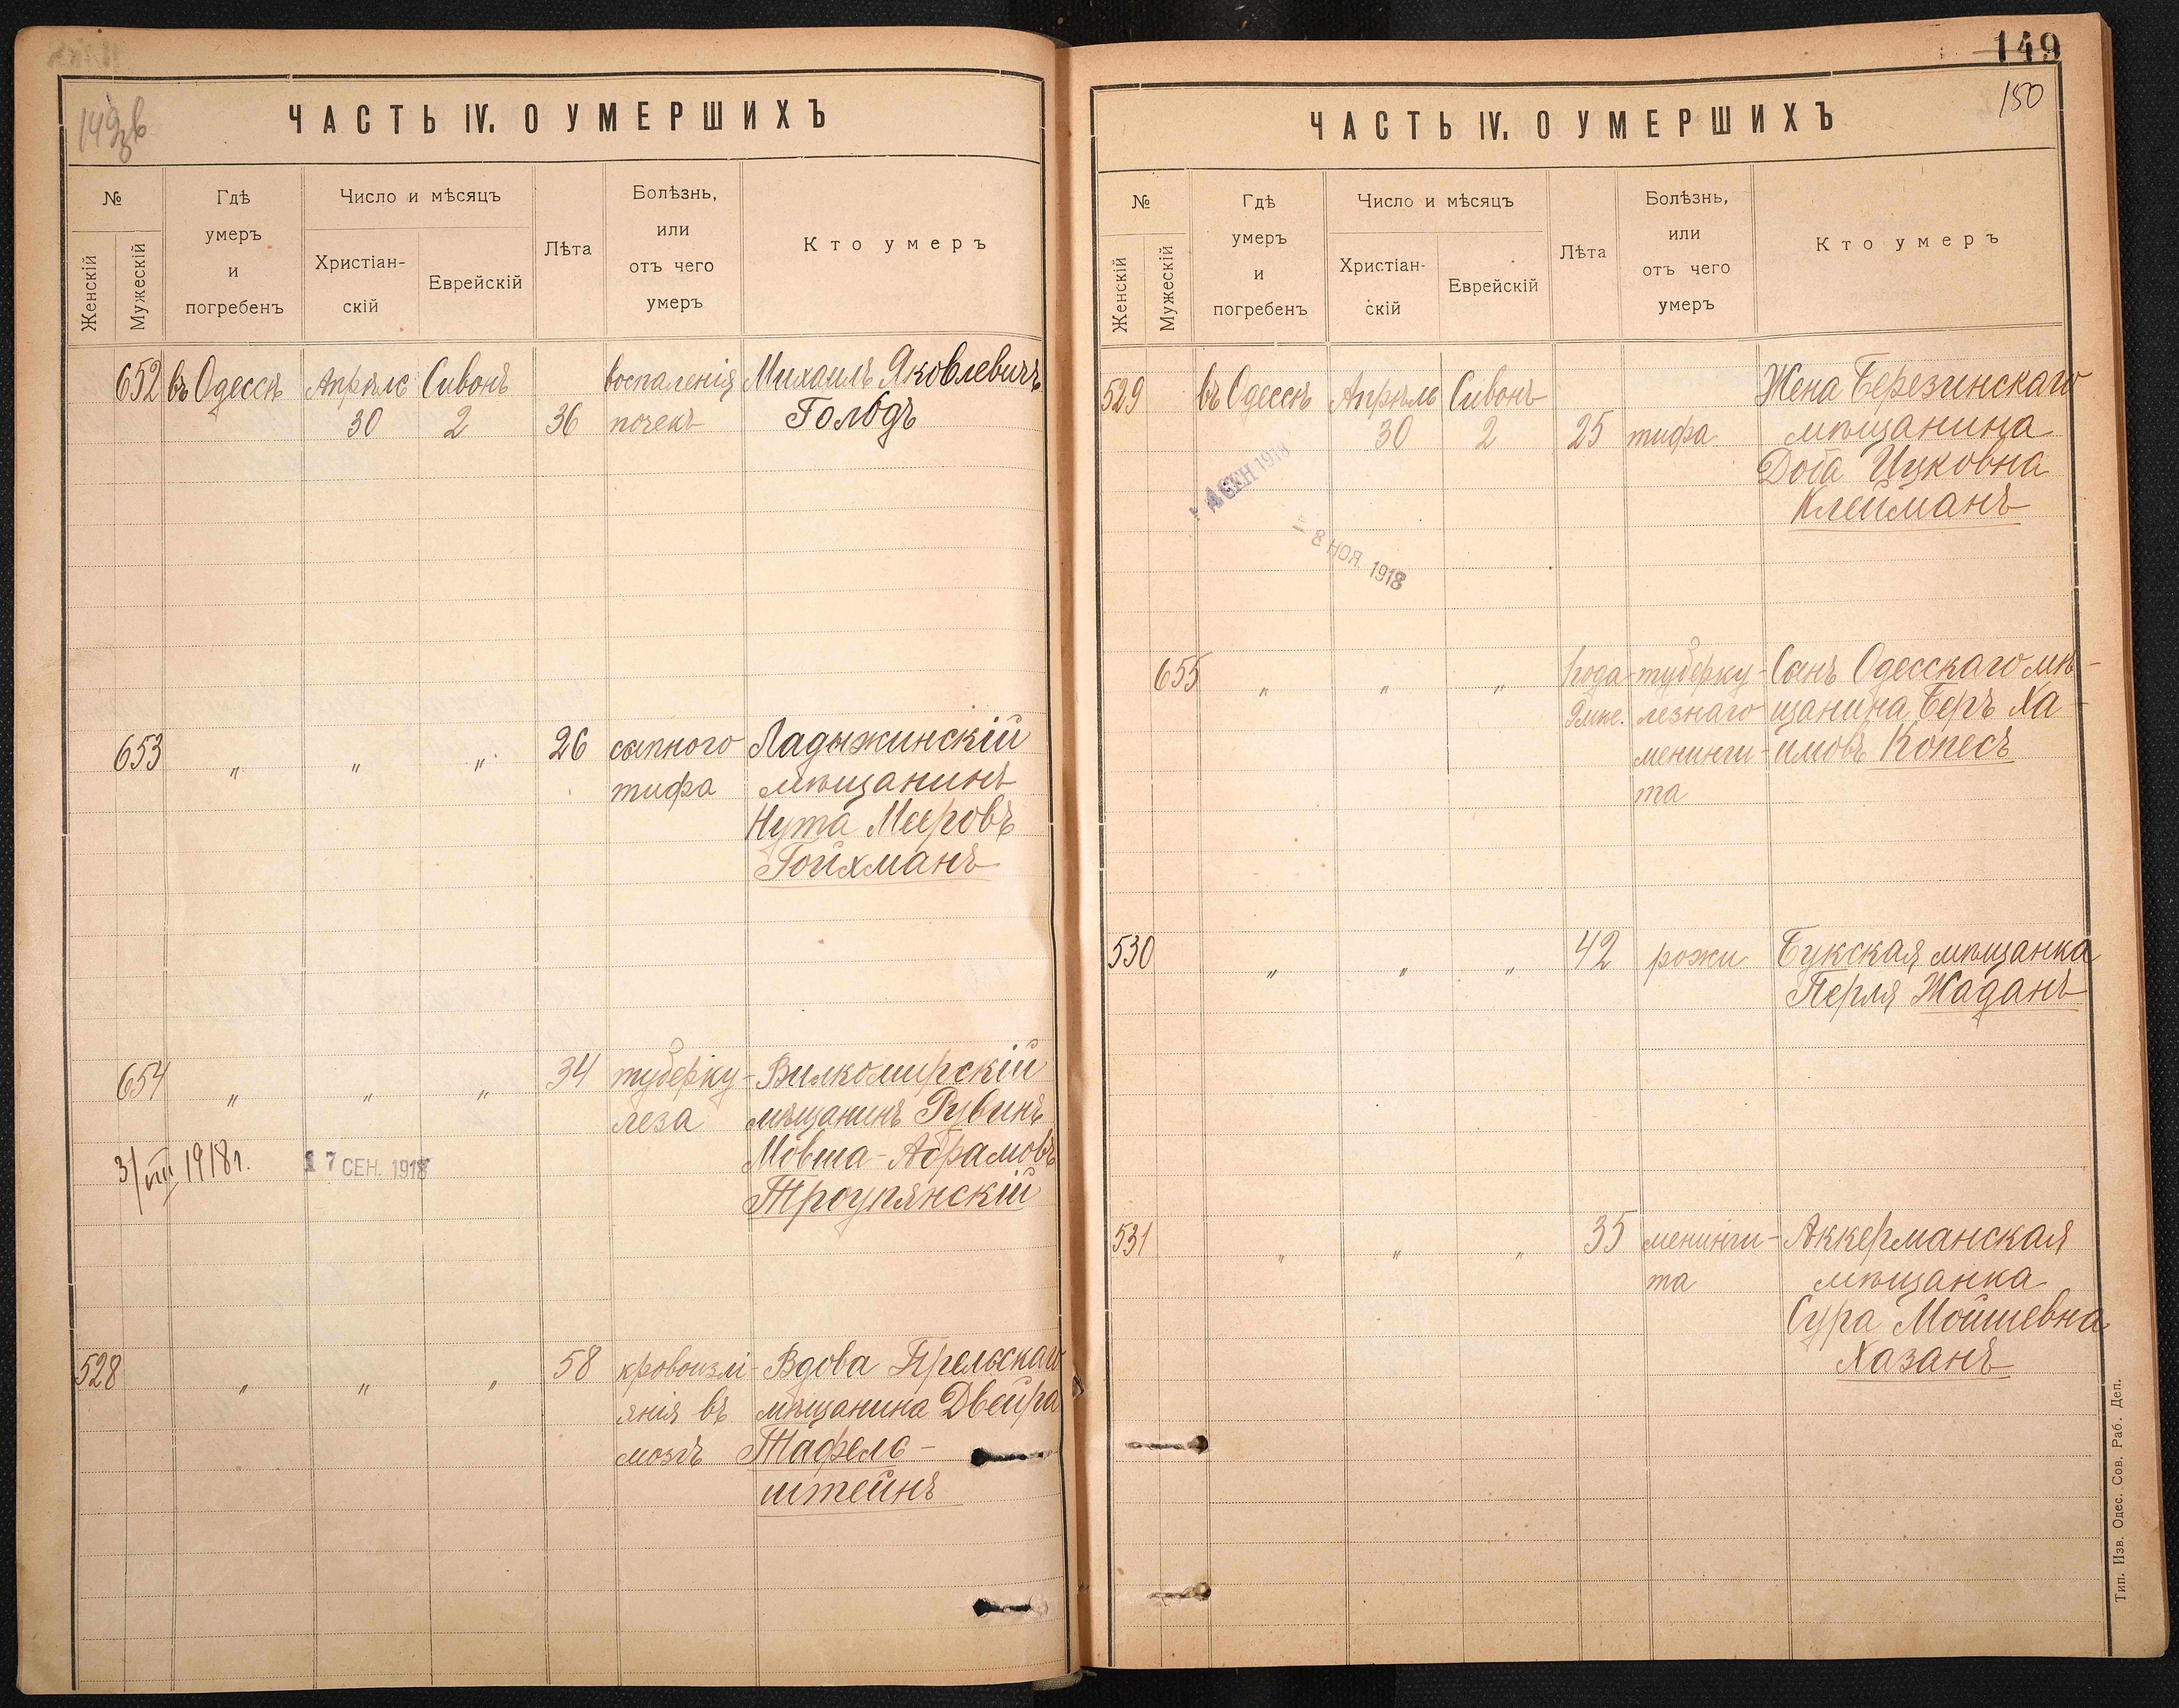 149
150
ЧАСТЬ IV. О УМЕРШИХЪ
№
Женскій
Мужескій
Гдѣ
умеръ
и
погребенъ
Число и мѣсяцъ
Христіан-
скій
Еврейскій
Лѣта
Болѣзнь,
или
отъ чего
умеръ
Кто умеръ
652 въ Одессѣ Апрѣль Сивонъ воспаленія Михаилъ Яковлевичъ
30 2 36 почекъ Гольдъ
653 " " " 26 сыпного Ладыжинскій
тифа мѣщанинъ
Нута Мееровъ
Гойхманъ
654 " " " 34 туберку- Вилкомирскій
леза мѣщанинъ Рувинъ
Мовша-Абрамовъ
Троупянскій
3/VIII 1918 г. 17 СЕН. 1918
528 " " " 58 кровоизлі- Вдова
янія въ мѣщанина Двейра
мозгъ Тафель-
штейнъ
ЧАСТЬ IV. О УМЕРШИХЪ
№
Женскій
Мужескій
Гдѣ
умеръ
и
погребенъ
Число и мѣсяцъ
Христіан-
скій
Еврейскій
Лѣта
Болѣзнь,
или
отъ чего
умеръ
Кто умеръ
529 въ Одессѣ Апрѣль Сивонъ Жена Березинскаго
30 2 25 тифа мѣщанина
Доба Ицковна
Клейманъ
СЕН 1918
- 8 НОЯ. 1918
655 " " " 1 года туберку- Сынъ Одесскаго мѣ-
9 мѣс. лезнаго щанина Беръ Ха-
менинги- имовъ Копесъ
та
530 " " " 42 рожи Букская мѣщанка
Перля Жаданъ
531 " " " 35 менинги- Аккерманская
та мѣщанка
Сура Мойшевна
Хазанъ
Тип. Изв. Одес. Сов. Раб. Деп.